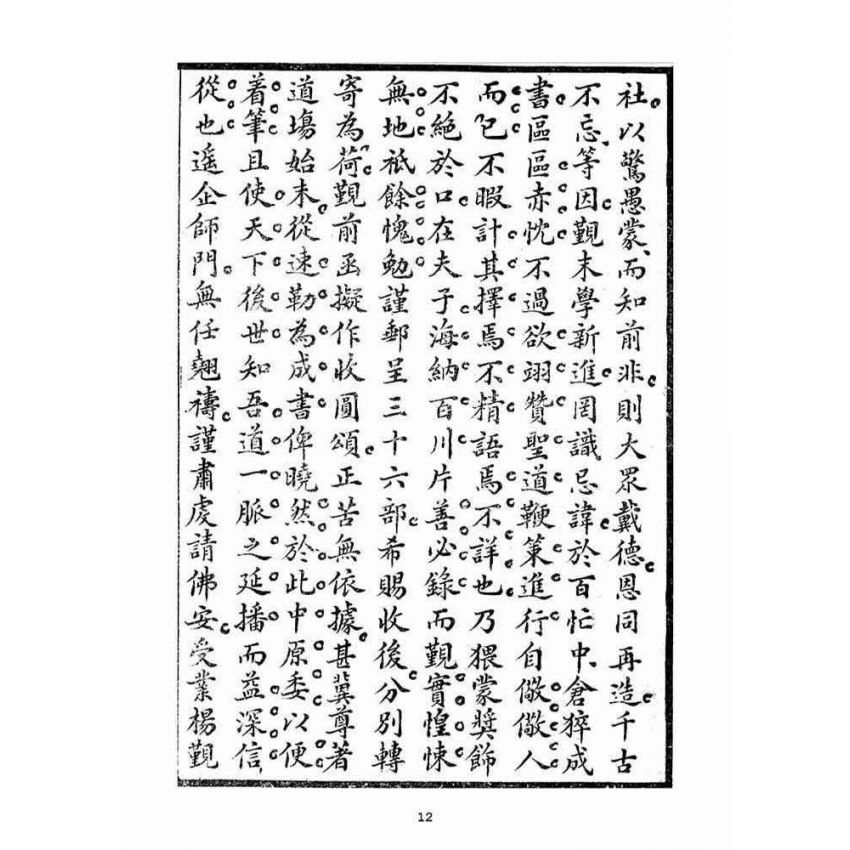 社以驚愚蒙而知前非則大眾戴德恩同再造千古
不忘等因觀末學新進罔識忌諱於百忙中倉猝成
書區區赤忱不過欲翊贊聖道鞭策進行自儆儆人
而已不暇計其擇焉不精語焉不詳也乃猥蒙獎飾
不絕於口在夫子海納百川片善必錄而觀實惶悚
無地祇餘愧勉謹郵呈三十六部希賜收後分別轉
寄為荷觀前函擬作收圓頌正苦無依據甚冀尊著
道塲始末從速勒為成書俾曉然於此中原委以便
着筆且使天下後世知吾道一脈之延播而益深信
從也遥企師門無任翹禱謹肅虔請佛安受業楊觀
12